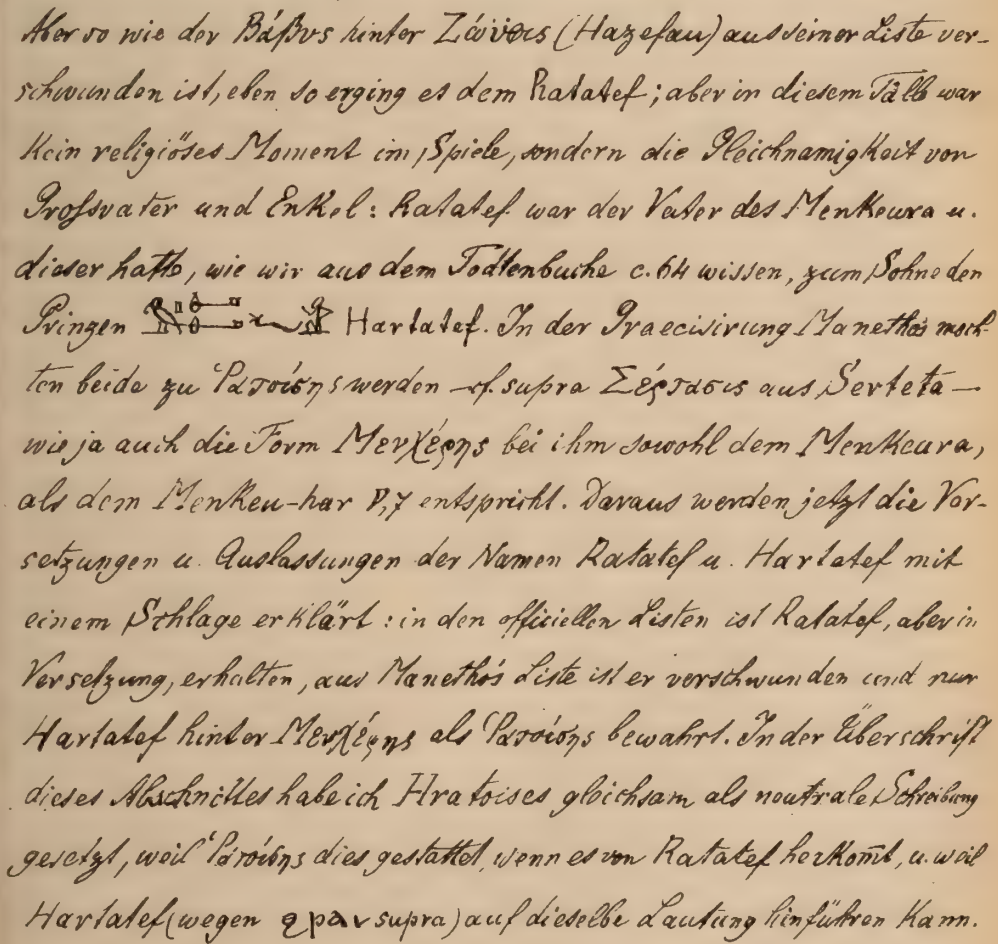 Aber so wie der Βάβυς hinter Ζώνθις (Hazefau) aus seiner Liste ver-
schwunden ist, eben so erging es dem Ratatef; aber in diesem Falle war
kein religiöses Moment im Spiele, sondern die Gleichnamigkeit von
Grofsvater und Enkel: Ratatef war der Vater des Menkeura u.
dieser hatte, wie wir aus dem Todtenbuche c. 64 wissen, zum Sohne den
Prinzen Hartatef. In der Praecisirung Manethos moch-
ten beide zu Ῥατοίσης werden – cf. supra Σέρτασις aus Serteta –
wie ja auch die Form Μενχέρης bei ihm sowohl dem Menkeura,
als dem Menkeu-har V,7 entspricht. Daraus werden jetzt die Ver-
setzungen u. Auslassungen der Namen Ratatef u. Hartatef mit
einem Schlage erklärt: in den officiellen Listen ist Ratatef, aber in
Versetzung, erhalten, aus Manethós Liste ist er verschwunden und nur
Hartatef hinter Μενχέρης als Ῥατοίσης bewahrt. In der Überschrift
dieses Abschnittes habe ich Hratoises gleichsam als neutrale Schreibung
gesetzt, weil Ῥατοίσης dies gestattet, wenn es von Ratatef herkom̄t, u. weil
Hartatef (wegen ϩραν supra) auf dieselbe Lautung hinführen kann.